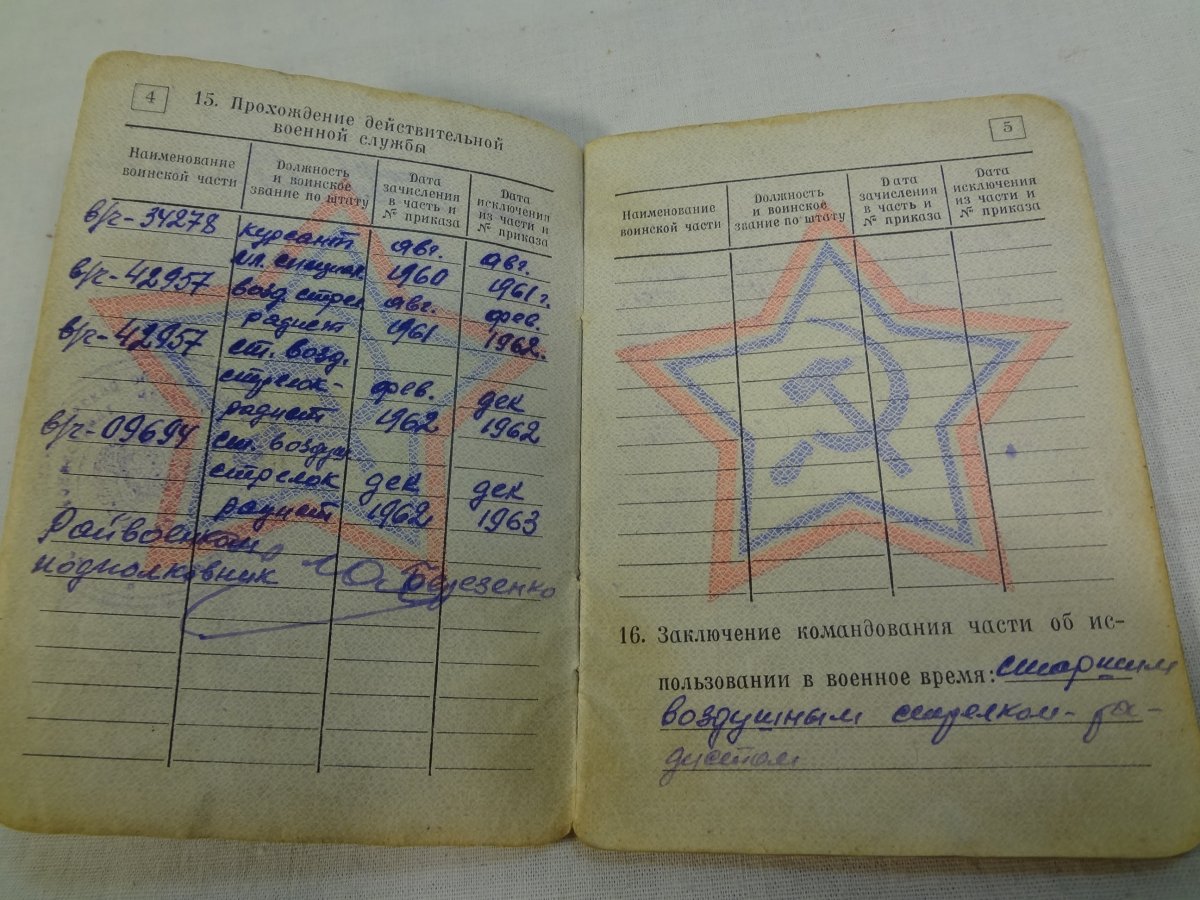 4
15. Прохождение действительной
военной службы
Наименование воинской части
Должность и воинское звание по штату
Дата зачисления в часть и № приказа
Дата исключения из части и № приказа
в/ч-34278 курсант авг. авг.
мл. специал. 1960 1961 г.
в/ч-42957 возд. стрел авг. фев.
радист 1961 1962.
в/ч-42957 ст. возд.
стрелок- фев. дек
радист 1962 1962
в/ч-09694 ст. воздуш
стрелок дек дек
радист 1962 1963
Райвоенком
подполковник Березенко
5
Наименование воинской части
Должность и воинское звание по штату
Дата зачисления в часть и № приказа
Дата исключения из части и № приказа
16. Заключение командования части об ис-
пользовании в военное время: старшим
воздушным стрелком-ра-
дистом